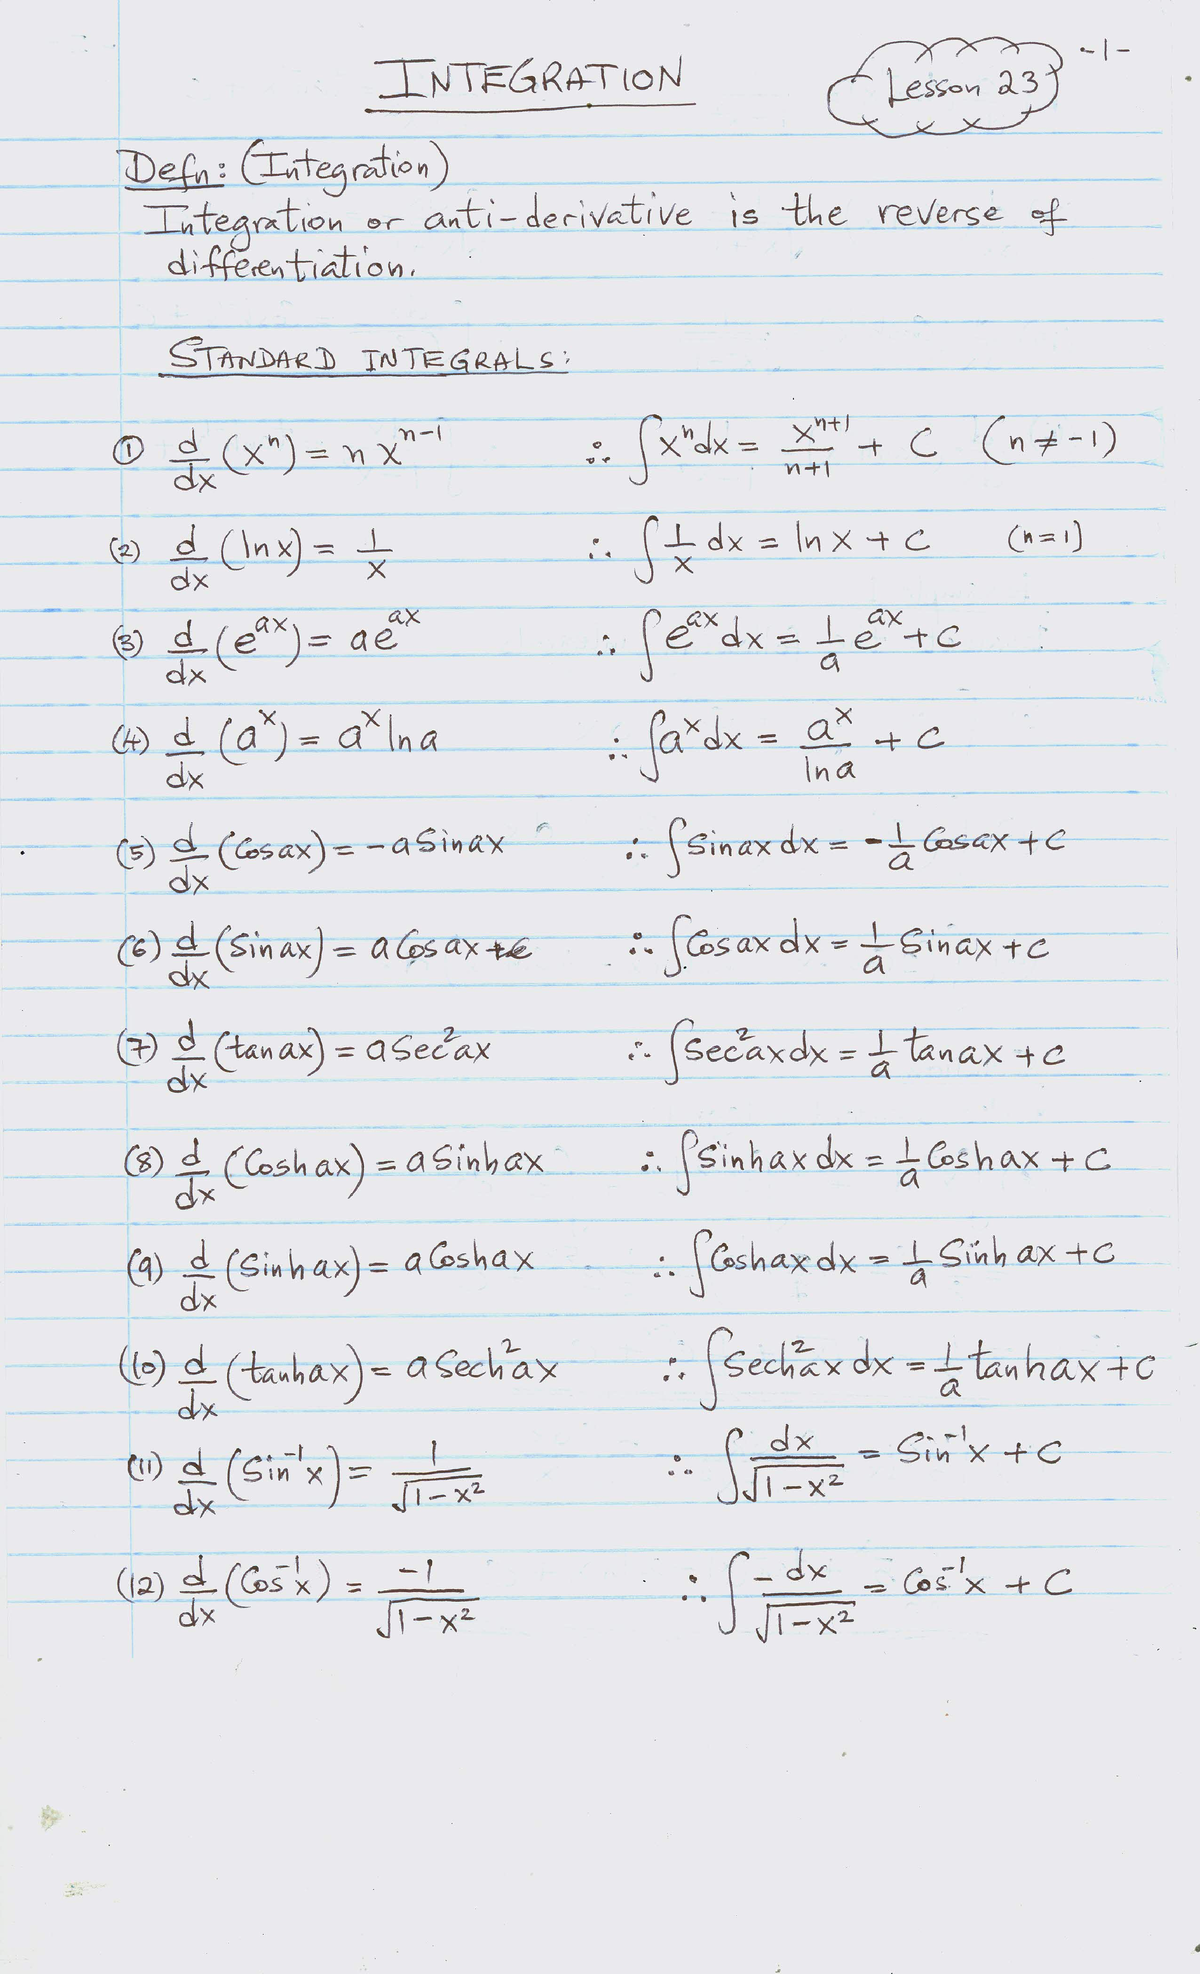 INTEGRATION
Lesson 23
-1-
Defn: (Integration)
Integration or anti-derivative is the reverse of
differentiation.
STANDARD INTEGRALS:
① d/dx (xⁿ) = n xⁿ⁻¹ ∴ ∫xⁿdx = xⁿ⁺¹/n+1 + C (n ≠ -1)
(2) d/dx (ln x) = 1/x ∴ ∫ 1/x dx = ln x + C (n=1)
(3) d/dx (e^ax) = ae^ax ∴ ∫e^ax dx = 1/a e^ax + C
(4) d/dx (a^x) = a^x ln a ∴ ∫a^x dx = a^x/ln a + C
(5) d/dx (Cos ax) = -a Sin ax ∴ ∫Sin ax dx = -1/a Cos ax + C
(6) d/dx (Sin ax) = a Cos ax +c ∴ ∫Cos ax dx = 1/a Sin ax + C
(7) d/dx (tan ax) = a Sec² ax ∴ ∫Sec² ax dx = 1/a tan ax + C
(8) d/dx (Cosh ax) = a Sinh ax ∴ ∫Sinh ax dx = 1/a Cosh ax + C
(9) d/dx (Sinh ax) = a Cosh ax ∴ ∫Cosh ax dx = 1/a Sinh ax + C
(10) d/dx (tanh ax) = a Sech² ax ∴ ∫Sech² ax dx = 1/a tanh ax + C
(11) d/dx (Sin⁻¹x) = 1/√1-x² ∴ ∫ dx/√1-x² = Sin⁻¹x + C
(12) d/dx (Cos⁻¹x) = -1/√1-x² ∴ ∫ -dx/√1-x² = Cos⁻¹x + C